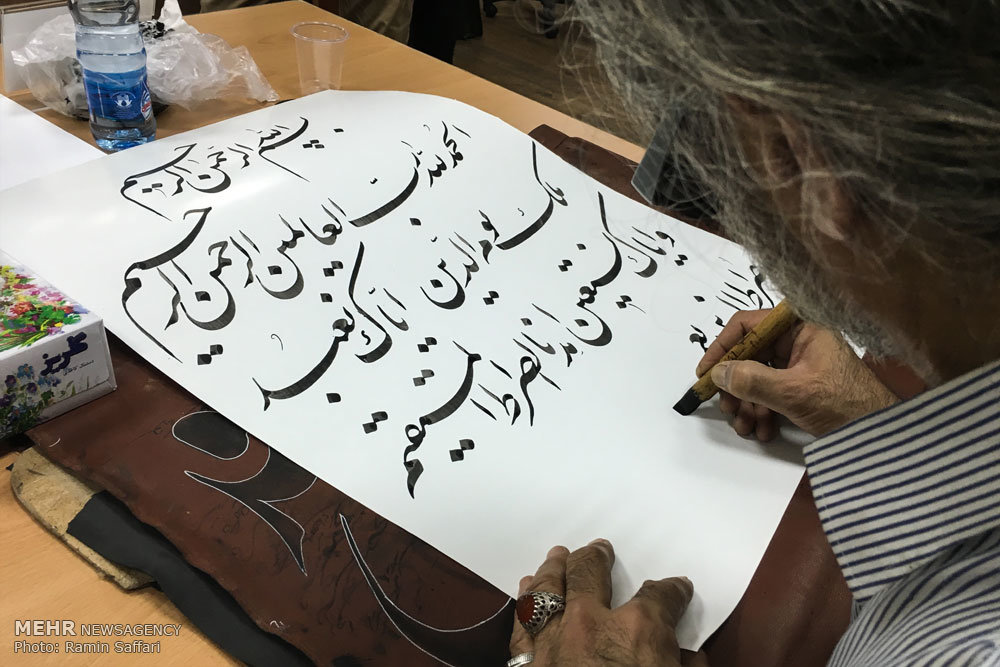 بسم الله الرحمن الرحیم
الحمد لله رب العالمین الرحمن الرحیم
ملک یوم الدین ایاک نعبد
و ایاک نستعین اهدنا الصراط المستقیم
صراط الذین
گلریز
MEHR NEWSAGENCY
Photo: Ramin Saffari